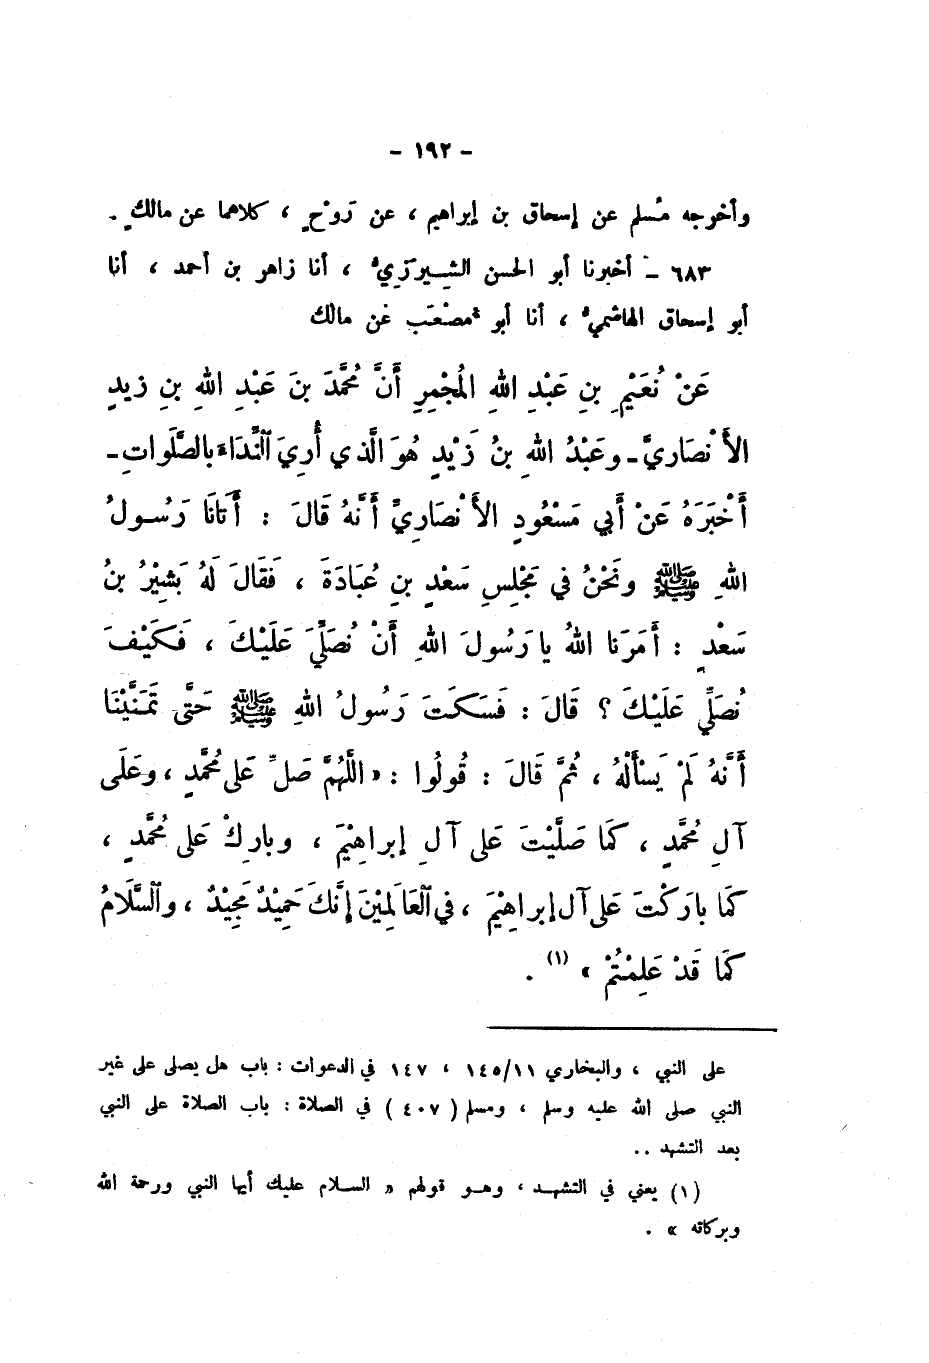 - ١٩٢ -
وأخرجه مُسلم عن إسحاق بن إبراهيم ، عن رَوْحٍ ، كلاهما عن مالكٍ .
٦٨٣ - أخبرنا أبو الحسن الشيرَزيُّ ، أنا زاهر بن أحمد ، أنا
أبو إسحاق الهاشميُّ ، أنا أبو مُصْعَب عَن مالك
عَنْ نُعَيْمِ بنِ عَبْدِ اللهِ المُجْمِرِ أَنَّ مُحَمَّدَ بنَ عَبْدِ اللهِ بنِ زيدٍ
الأَنْصَاريَّ - وعَبْدُ اللهِ بنُ زَيْدٍ هُوَ الَّذي أُرِيَ ٱلنِّدَاءَ بالصَّلَواتِ -
أَخْبَرَهُ عَنْ أَبي مَسْعُودٍ الأَنْصَارِيِّ أَنَّهُ قَالَ : أَتَانَا رَسُولُ
اللهِ ﷺ ونَحْنُ في مَجْلِسِ سَعْدِ بنِ عُبَادَةَ ، فَقَالَ لَهُ بَشِيْرُ بنُ
سَعْدٍ : أَمَرَنا اللهُ يا رَسُولَ اللهِ أَنْ نُصَلِّيَ عَلَيْكَ ، فَكَيْفَ
نُصَلِّي عَلَيْكَ ؟ قَالَ : فَسَكَتَ رَسُولُ اللهِ ﷺ حَتَّى تَمَنَّيْنَا
أَنَّهُ لَمْ يَسْأَلْهُ ، ثُمَّ قَالَ : قُولُوا : « اللَّهُمَّ صَلِّ عَلى مُحَمَّدٍ ، وعَلَى
آلِ مُحَمَّدٍ ، كَمَا صَلَّيْتَ عَلى آلِ إبراهِيْمَ ، وبارِكْ عَلى مُحَمَّدٍ ،
كَمَا بارَكْتَ عَلى آل إبراهِيْمَ ، في ٱلعَالَمِيْنَ إنَّكَ حَمِيْدٌ مَجِيْدٌ ، وٱلسَّلَامُ
كَمَا قَدْ عَلِمْتُمْ » (١) .
على النبي ، والبخاري ١٤٥/١١ ، ١٤٧ في الدعوات : باب هل يصلى على غير
النبي صلى الله عليه وسلم ، ومسلم ( ٤٠٧ ) في الصلاة : باب الصلاة على النبي
بعد التشهد ..
(١) يعني في التشهد ، وهو قولهم « السلام عليك أيها النبي ورحمة الله
وبركاته » .